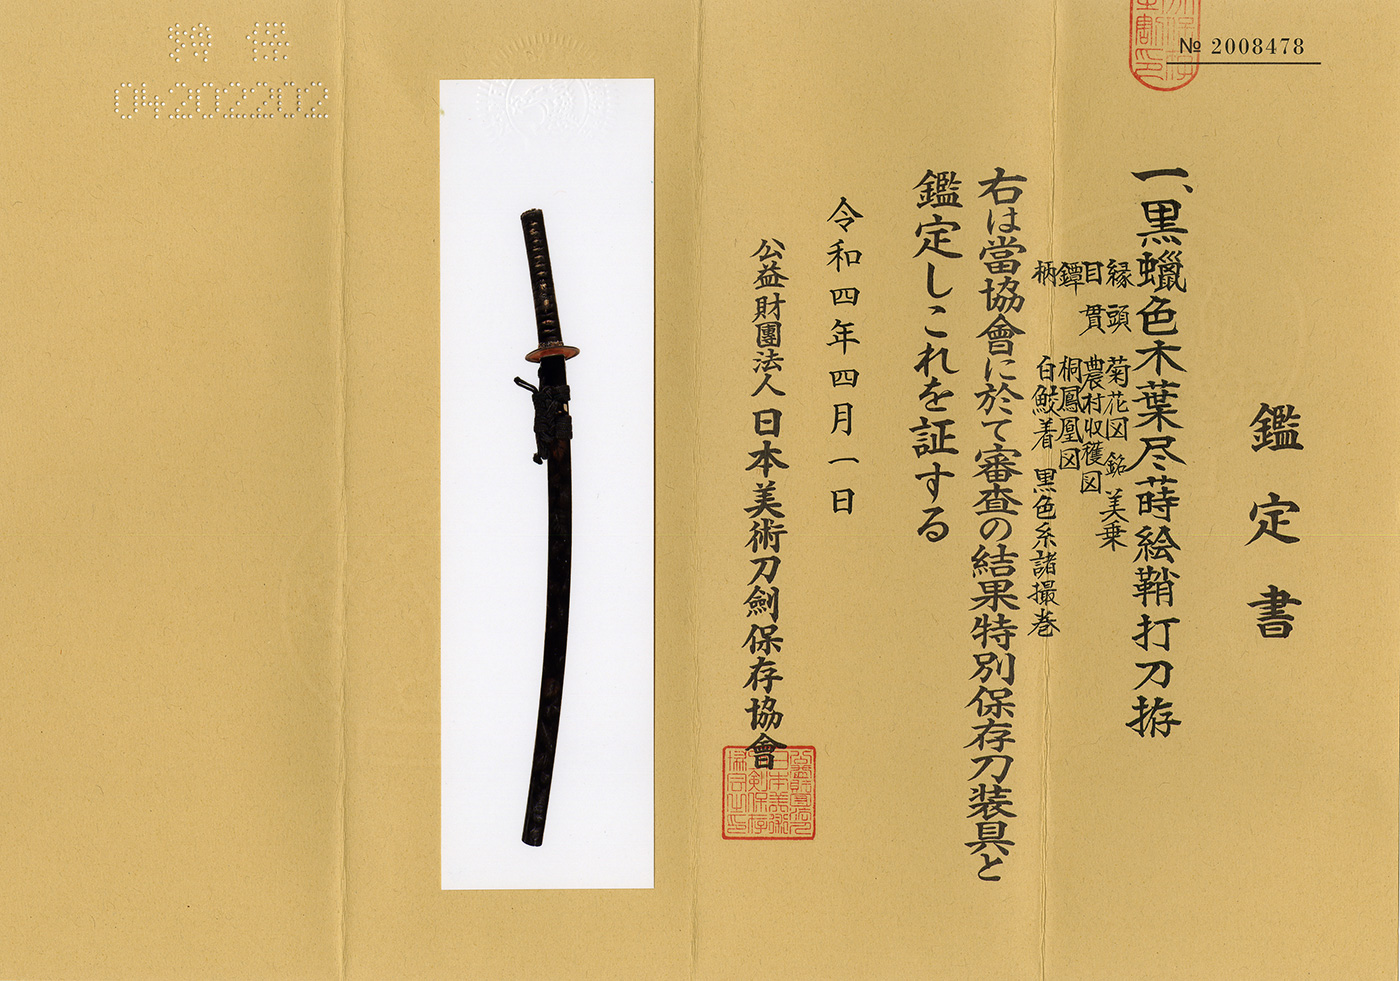 № 2008478
鑑定書
一、黒蠟色木葉尽蒔絵鞘打刀拵
縁頭 菊花図 銘 美乗
目貫 農村収穫図
鐔 桐鳳凰図
柄 白鮫着 黒色糸諸撮巻
右は當協會に於て審査の結果特別保存刀装具と
鑑定しこれを証する
令和四年四月一日
公益財團法人 日本美術刀劍保存協會
04202202